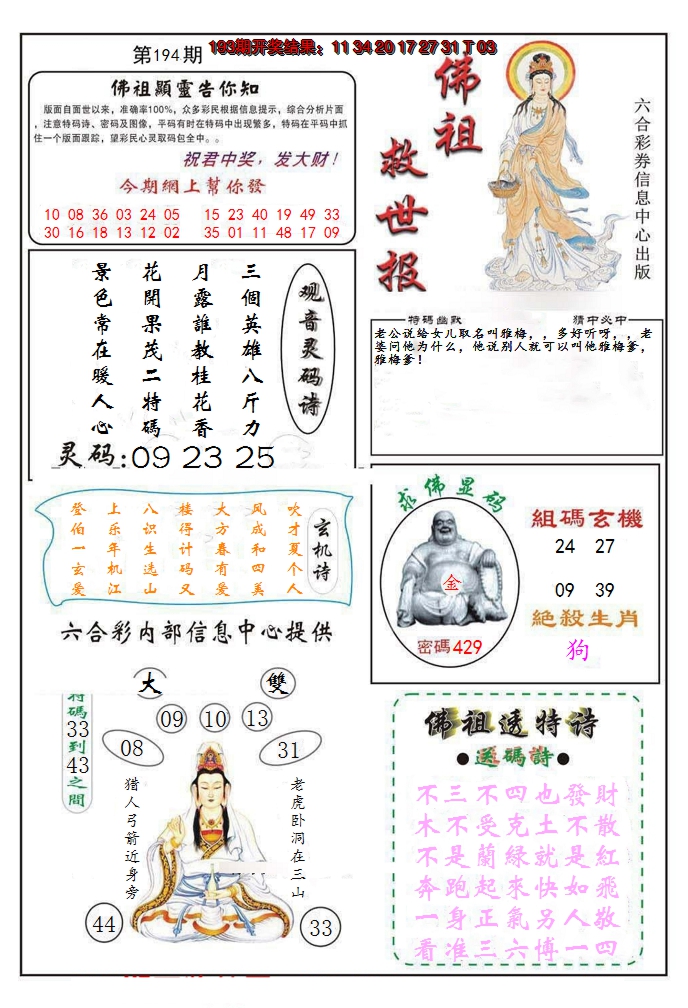 第194期
193期开奖结果：11 34 20 17 27 31 T 03
佛祖顯靈告你知
版面自面世以来，准确率100%，众多彩民根据信息提示，综合分析片面
，注意特码诗、密码及图像，平码有时在特码中出现繁多，特码在平码中抓
住一个版面跟踪，望彩民心灵取码包全中。。
祝君中奖，发大财！
今期網上幫你發
10 08 36 03 24 05 15 23 40 19 49 33
30 16 18 13 12 02 35 01 11 48 17 09
佛祖
救世报
六合彩券信息中心出版
观音灵码诗
三個英雄八斤力
月露誰教桂花香
花開果茂二特碼
景色常在暖人心
灵码:09 23 25
特碼幽默 猜中必中
老公说给女儿取名叫雅梅，，多好听呀，，老
婆问他为什么，他说别人就可以叫他雅梅爹，
雅梅爹！
玄机诗
登上八楼大风吹
伯乐识得方成才
一年生计春和夏
玄机选码有四个
爱江山又爱美人
六合彩内部信息中心提供
求佛显码
金
密碼429
組碼玄機
24 27
09 39
絕殺生肖
狗
大 雙
特碼33到43之間
09 10 13
08 31
猎人弓箭近身旁
老虎卧洞在三山
44 33
佛祖透特诗
●送碼詩●
不三不四也發財
木不受克土不散
不是蘭緑就是紅
奔跑起來快如飛
一身正氣另人敬
看准三六博一四